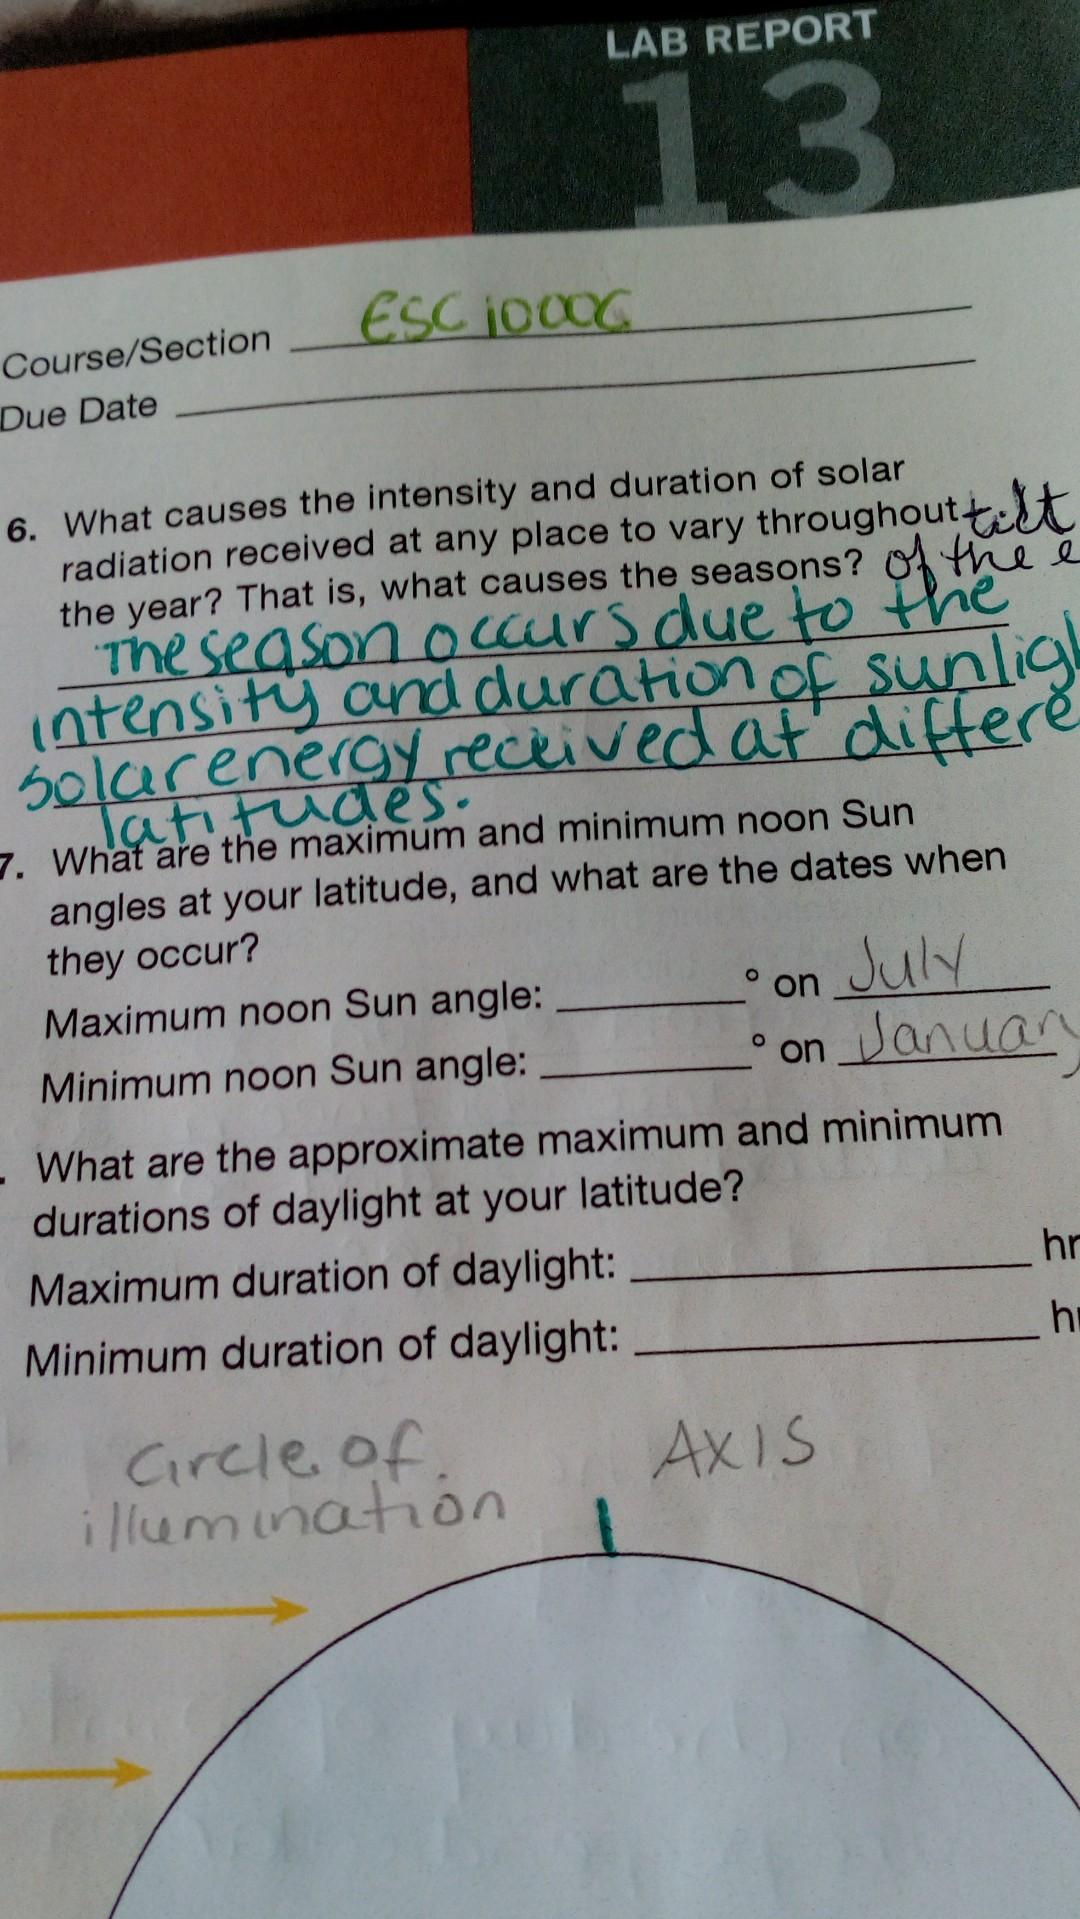 LAB REPORT
13
Course/Section ESC 1000C
Due Date
6. What causes the intensity and duration of solar
radiation received at any place to vary throughout tilt
the year? That is, what causes the seasons? of the e
The season occurs due to the
intensity and duration of sunligh
solar energy received at differe
latitudes.
7. What are the maximum and minimum noon Sun
angles at your latitude, and what are the dates when
they occur?
Maximum noon Sun angle: ° on July
Minimum noon Sun angle: ° on January
What are the approximate maximum and minimum
durations of daylight at your latitude?
Maximum duration of daylight: hr
Minimum duration of daylight: hr
Circle of AXIS
illumination